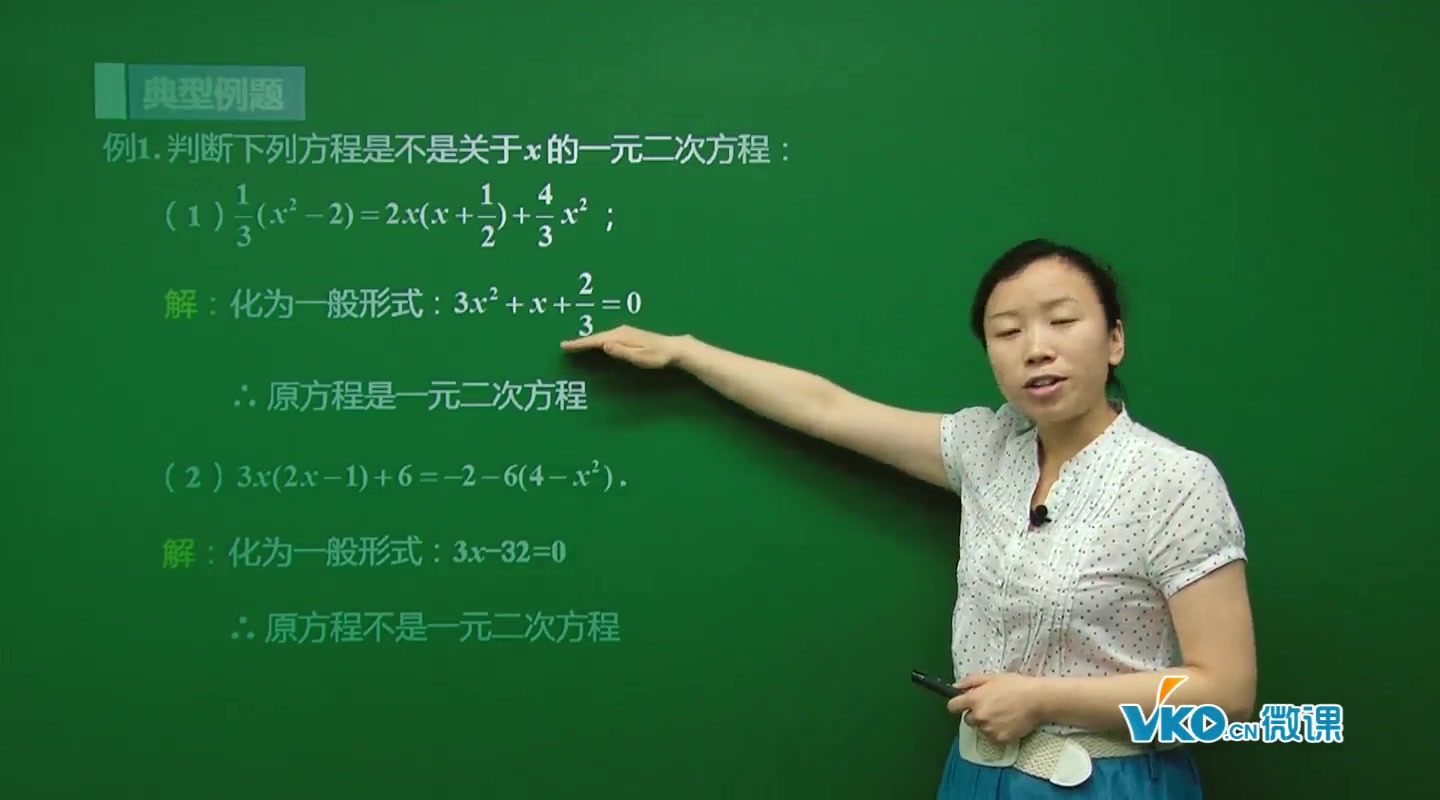 典型例题
例1. 判断下列方程是不是关于 x 的一元二次方程：
（1）1/3(x² − 2) = 2x(x + 1/2) + 4/3 x² ；
解：化为一般形式：3x² + x + 2/3 = 0
∴ 原方程是一元二次方程
（2）3x(2x − 1) + 6 = −2 − 6(4 − x²) .
解：化为一般形式：3x−32=0
∴ 原方程不是一元二次方程
VKO.CN微课